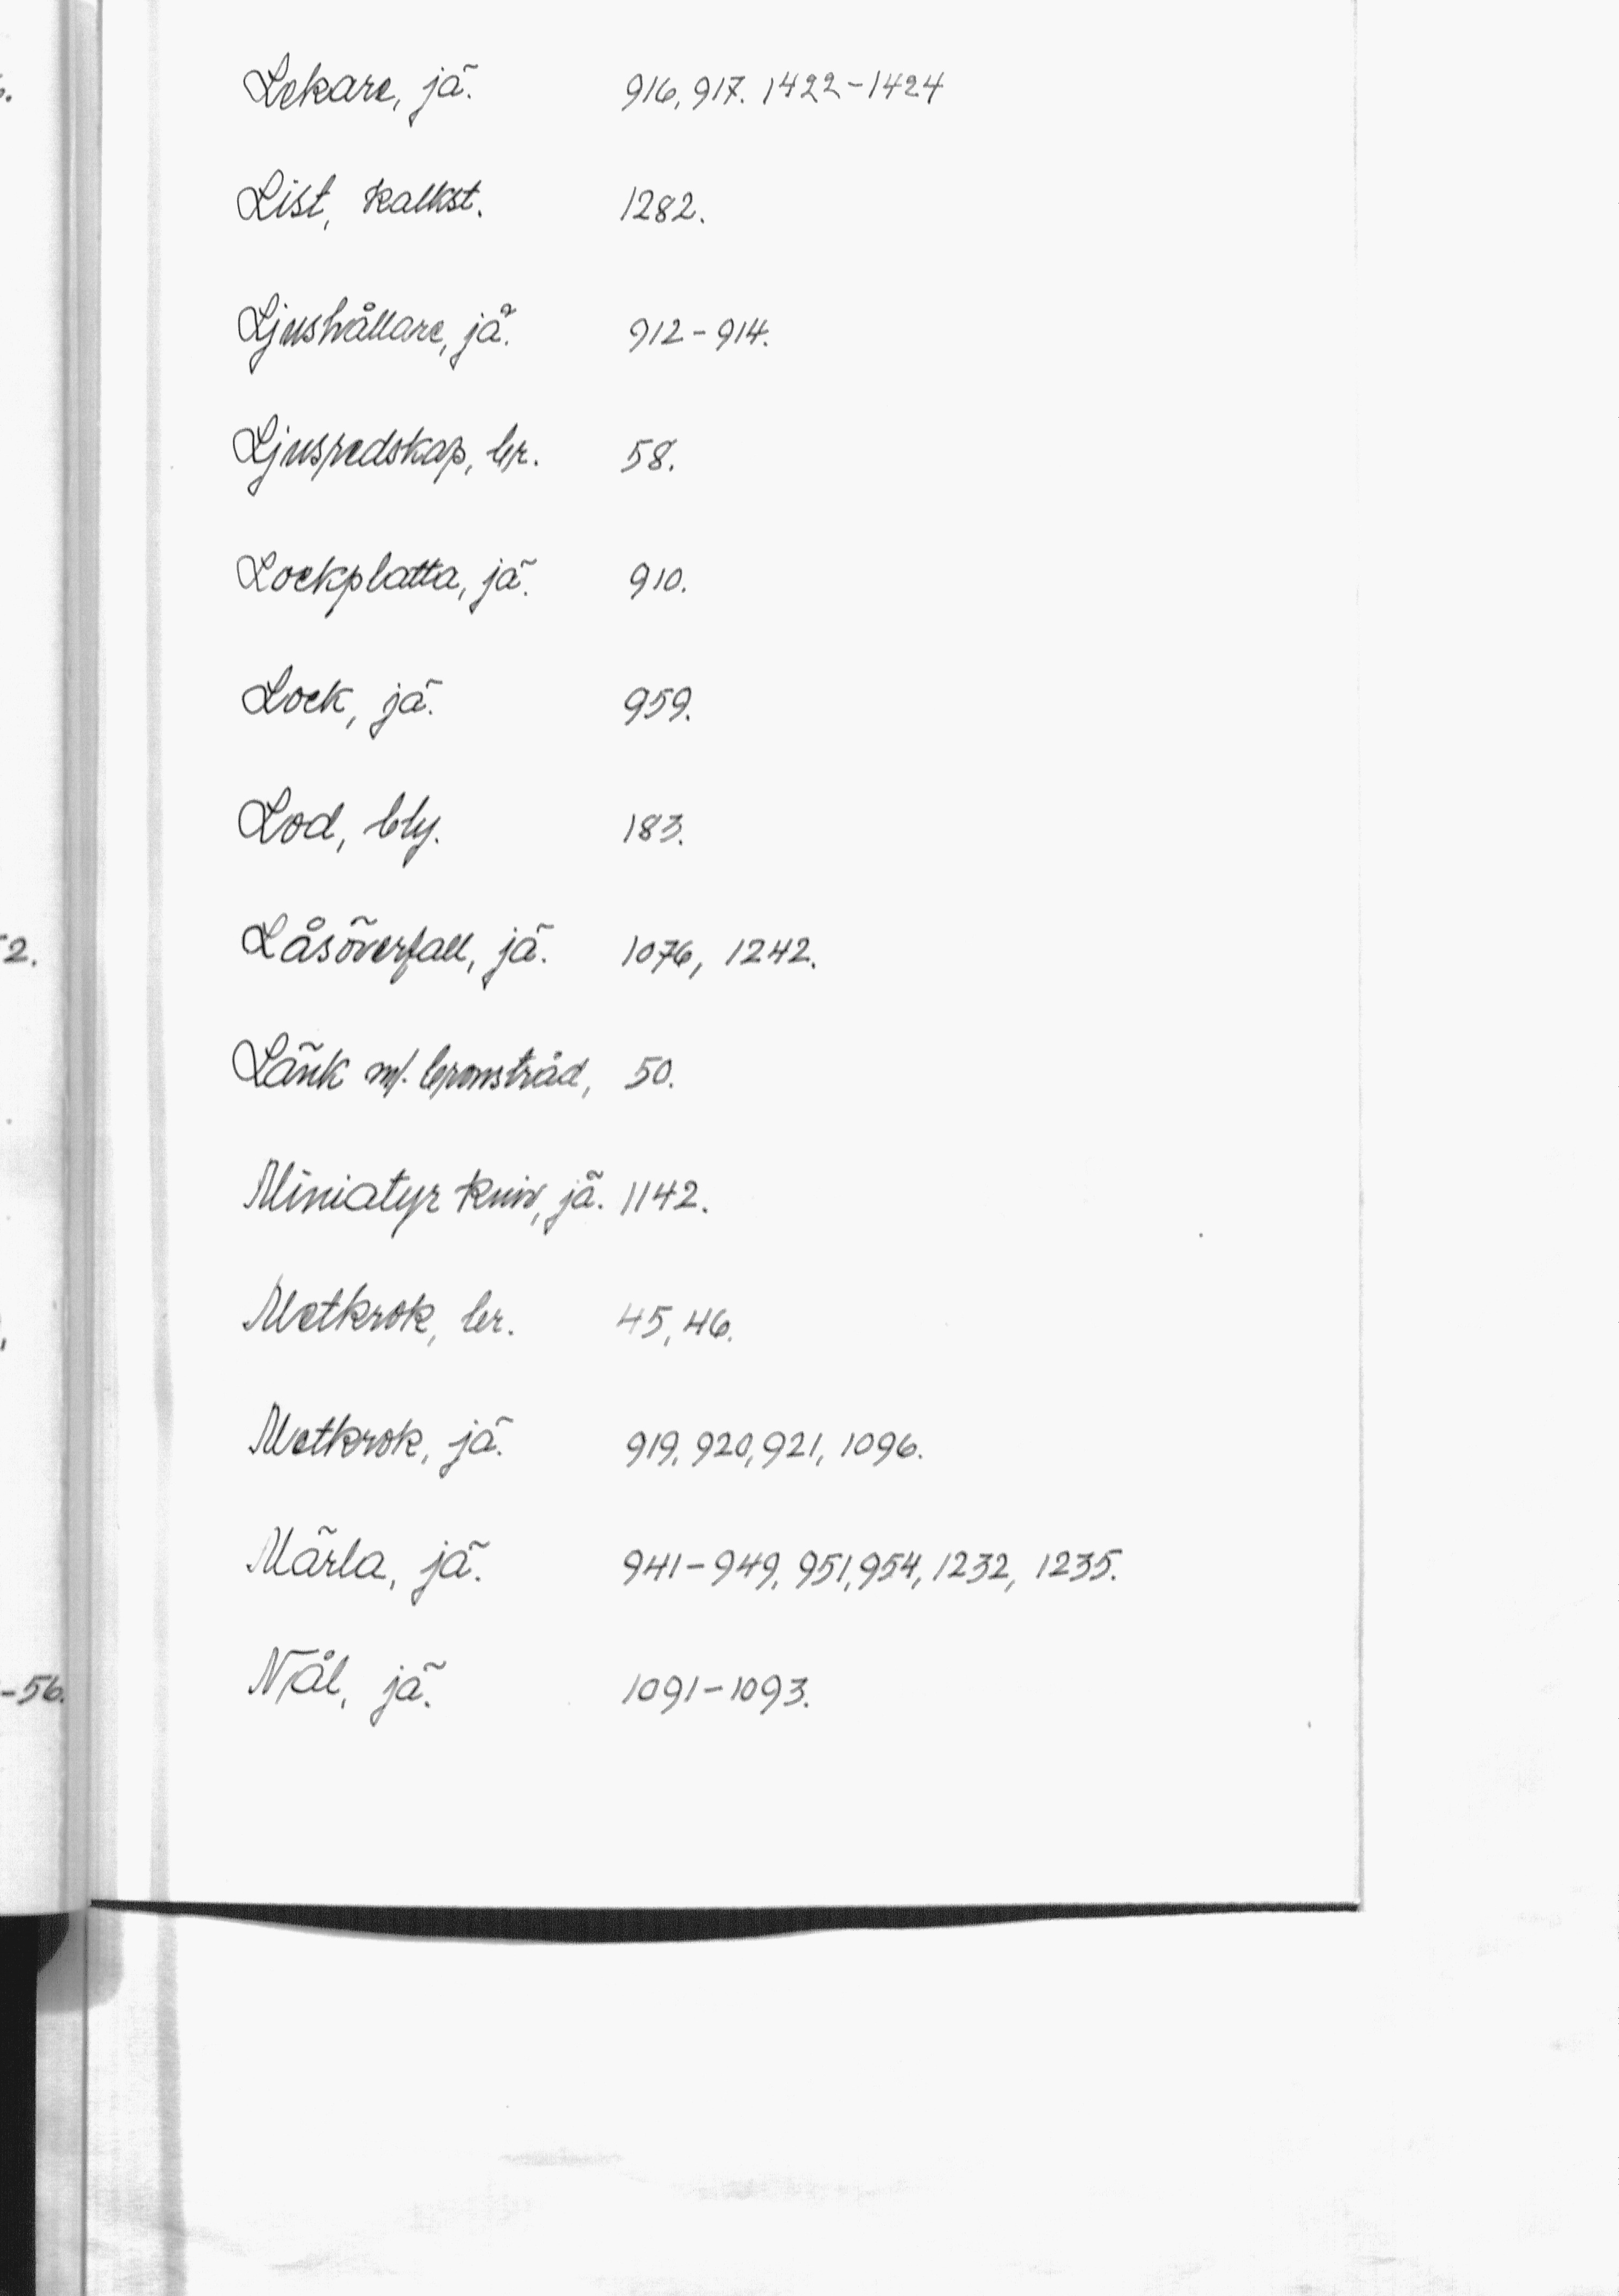 Lekare, jä. 916, 917. 1422-1424
List, kalkst. 1282.
Ljushållare, jä. 912-914.
Ljusredskap, br. 58.
Lockplatta, jä. 910.
Lock, jä. 959.
Lod, bly. 183.
Låsöverfall, jä. 1076, 1242.
Länk m/. bronstråd, 50.
Miniatyr kniv, jä. 1142.
Metkrok, br. 45, 46.
Metkrok, jä. 919, 920, 921, 1096.
Märla, jä. 941-949, 951, 954, 1232, 1235.
Nål, jä. 1091-1093.
2.
-56.